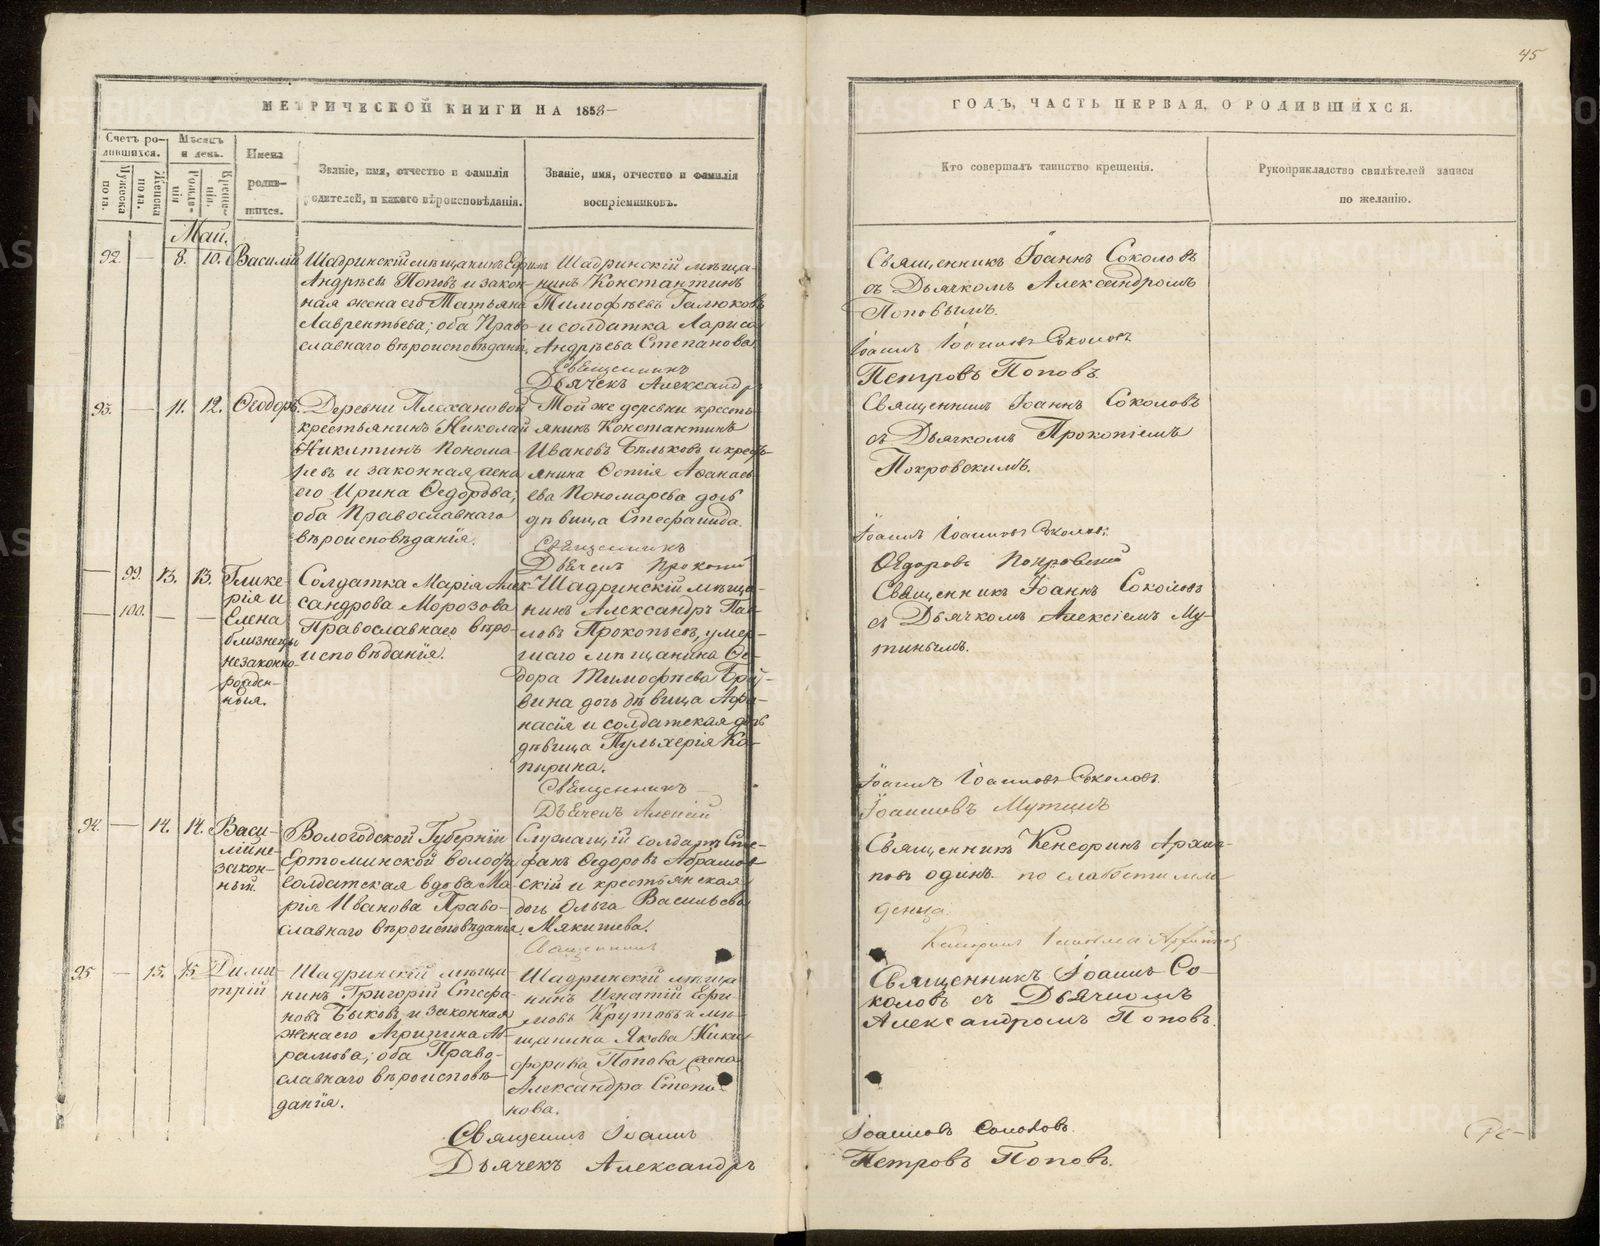 45
МЕТРИЧЕСКОЙ КНИГИ НА 1858
ГОДЪ, ЧАСТЬ ПЕРВАЯ, О РОДИВШИХСЯ.
Счетъ ро-
дившихся.
Мужеска
пола.
Женска
пола.
Мѣсяцъ
и день.
Рожде-
нія
Креще-
нія.
Имена
родив-
шихся.
Званіе, имя, отчество и фамилія
родителей, и какого вѣроисповѣданія.
Званіе, имя, отчество и фамилія
воспріемниковъ.
Кто совершалъ таинство крещенія.
Рукоприкладство свидѣтелей записи
по желанію.
Май.
92. — 8. 10. Василій
Шадринскій мѣщанинъ Ефимъ
Андрѣевъ Поповъ и закон-
ная жена его Татьяна
Лаврентьева; оба Право-
славнаго вѣроисповѣданія.
Шадринскій мѣща-
нинъ Константинъ
Тимофѣевъ Галюковъ
и солдатка Лариса
Андрѣева Степанова
Священникъ
Дьячекъ Александръ
Священникъ Іоаннъ Соколовъ
съ Дьячкомъ Александромъ
Поповымъ.
Іоаннъ Іоанновъ Соколовъ
Петровъ Поповъ.
93. — 11. 12. Ѳеодоръ.
Деревни Плехановой
крестьянинъ Николай
Никитинъ Понома-
ревъ и законная жена
его Ирина Ѳедорова;
оба Православнаго
вѣроисповѣданія.
Той же деревни кресть-
янинъ Константинъ
Ивановъ Бѣльковъ и кресть-
янина
Пономарева дочь
дѣвица Стефанида.
Священникъ
Дьячекъ Прокопій
Священникъ Іоаннъ Соколовъ
съ Дьячкомъ Прокопіемъ
Покровскимъ.
Іоаннъ Іоанновъ Соколовъ.
Ѳедоровъ Покровскій
— 99. 13. 13. Глике-
рія и
— 100. — — Елена
близнецы
незаконно-
рожден-
ныя.
Солдатка Марія Алек-
сандрова Морозова
Православнаго вѣро-
исповѣданія.
Шадринскій мѣща-
нинъ Александръ Пав-
ловъ Прокопьевъ, умер-
шаго мѣщанина Ѳе-
дора Тимофѣева
дочь дѣвица Афа-
насія и солдатская дочь
дѣвица Пульхерія Ка-
пырина.
Священникъ
Дьячекъ Алексій
Священникъ Іоаннъ Соколовъ
съ Дьячкомъ Алексіемъ Му-
тинымъ.
Іоаннъ Іоанновъ Соколовъ.
Іоанновъ Мутинъ
94. — 14. 14. Васи-
лій не-
закон-
ный.
Вологодской Губерніи
Ертоминской волости
солдатская вдова Ма-
рія Иванова Право-
славнаго вѣроисповѣданія.
Служащій солдатъ Сте-
фанъ Ѳедоровъ Абрамов-
скій и крестьянская
дочь Ольга Васильева
Мякишева.
Священникъ
Священникъ Кенсоринъ Архип-
повъ одинъ по слабости мла-
денца.
95 — 15. 15 Дими-
трій
Шадринскій мѣща-
нинъ Григорій Стефа-
новъ Быковъ, и законная
жена его Агрипина Аб-
рамова; оба Право-
славнаго вѣроисповѣ-
данія.
Шадринскій мѣща
нинъ Игнатій Ефи-
мовъ Крутовъ и мѣ-
щанина Якова Ники-
форова Попова жена
Александра Степа-
нова.
Священникъ Іоаннъ
Дьячекъ Александръ
Священникъ Іоаннъ Со-
коловъ съ Дьячкомъ
Александромъ Поповъ.
Іоанновъ Соколовъ.
Петровъ Поповъ.
METRIKI.GASO-URAL.RU